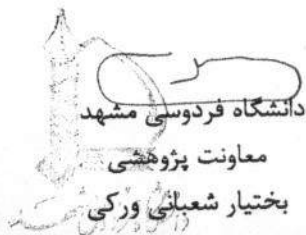 دانشگاه فردوسی مشهد
معاونت پژوهشی
بختیار شعبانی ورکی